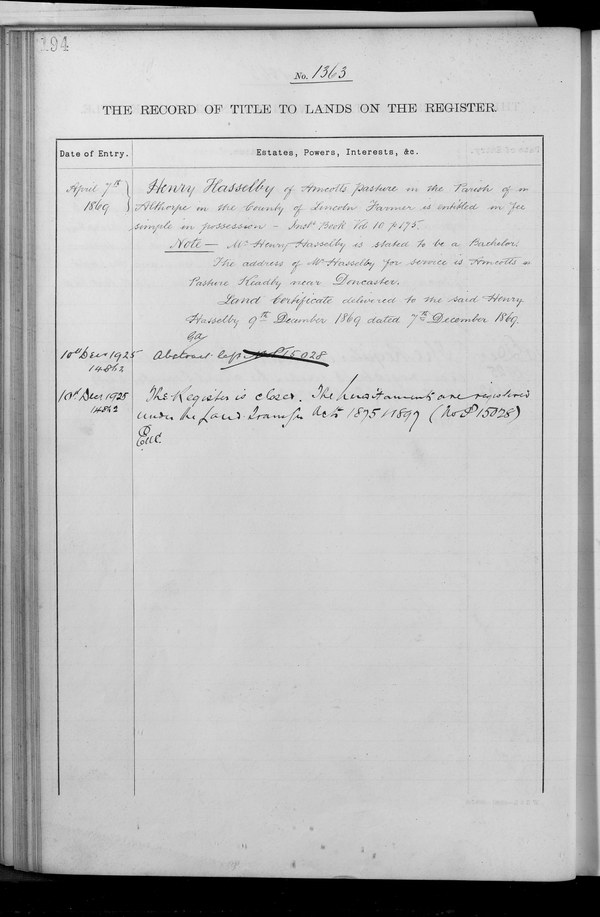 194
No. 1363
THE RECORD OF TITLE TO LANDS ON THE REGISTER.
Date of Entry.
Estates, Powers, Interests, &c.
April 7th
1869
Henry Hasselby of Amcotts pasture in the Parish of
Althorpe in the County of Lincoln Farmer is entitled in fee
simple in possession - Inst. Book Vol 10 p 175.
Note - Mr Henry Hasselby is stated to be a Bachelor.
The address of Mr Hasselby for service is Amcotts
Pasture Keadby near Doncaster.
Land Certificate delivered to the said Henry
Hasselby 9th December 1869 dated 7th December 1869.
10th Decr 1925
14862
Abstract 15028
10th Decr 1925
14862
The Register is closed. The hereditaments are registered
under the Land Transfer Acts 1875 & 1897 (No P 15028)